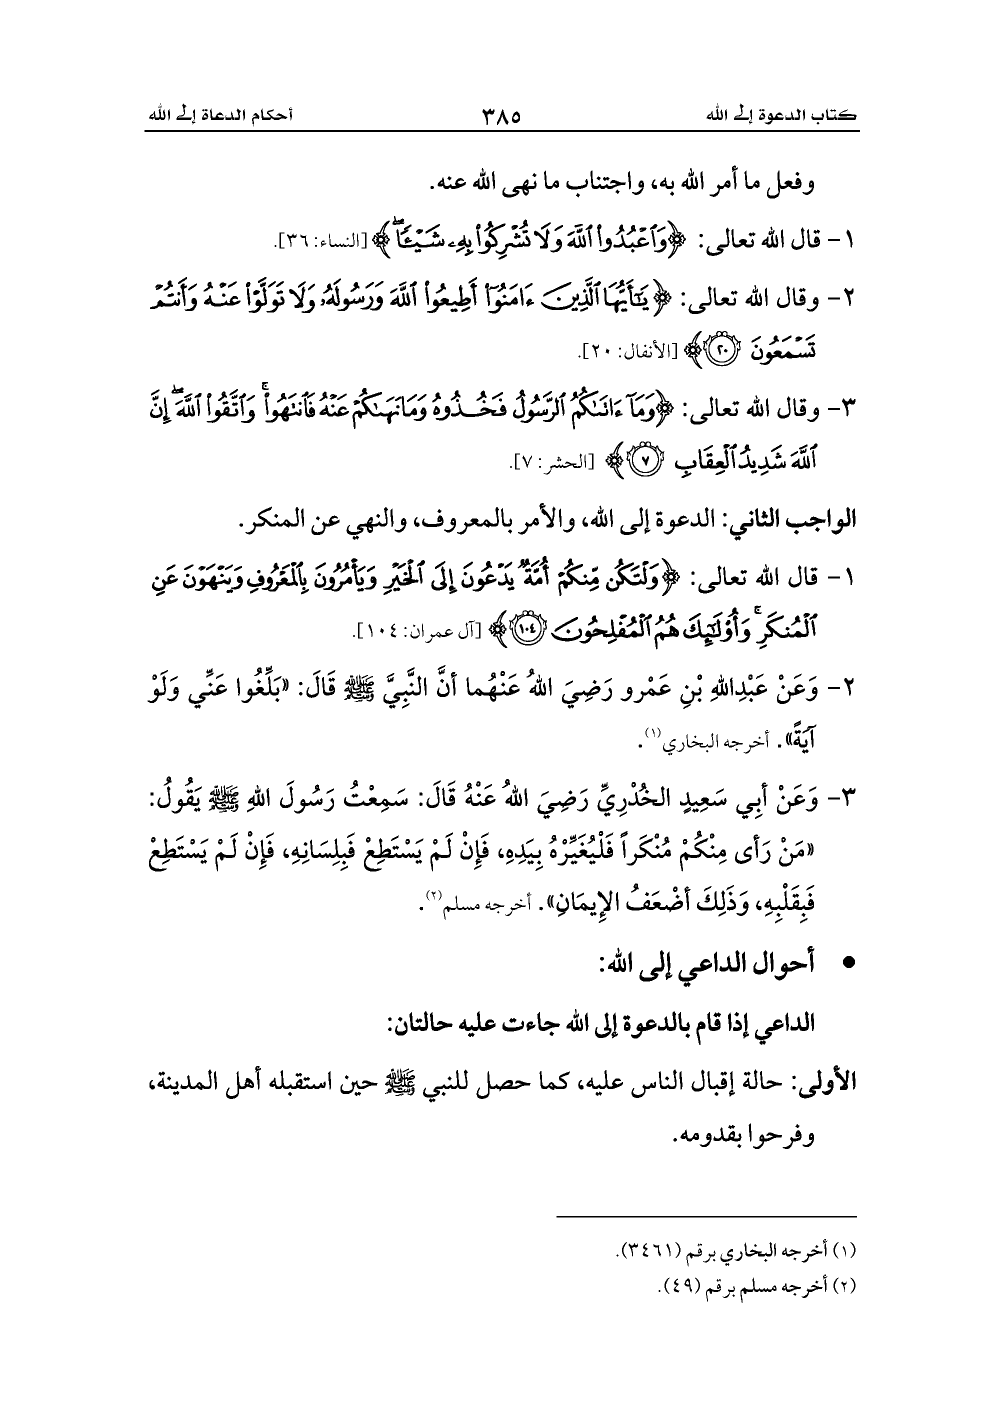 كتاب الدعوة إلى الله ٣٨٥ أحكام الدعاة إلى الله
وفعل ما أمر الله به، واجتناب ما نهى الله عنه.
١- قال الله تعالى: ﴿وَٱعْبُدُوا۟ ٱللَّهَ وَلَا تُشْرِكُوا۟ بِهِۦ شَيْـًٔاۖ﴾ [النساء: ٣٦].
٢- وقال الله تعالى: ﴿يَٰٓأَيُّهَا ٱلَّذِينَ ءَامَنُوٓا۟ أَطِيعُوا۟ ٱللَّهَ وَرَسُولَهُۥ وَلَا تَوَلَّوْا۟ عَنْهُ وَأَنتُمْ
تَسْمَعُونَ ٢٠﴾ [الأنفال: ٢٠].
٣- وقال الله تعالى: ﴿وَمَآ ءَاتَىٰكُمُ ٱلرَّسُولُ فَخُذُوهُ وَمَا نَهَىٰكُمْ عَنْهُ فَٱنتَهُوا۟ۚ وَٱتَّقُوا۟ ٱللَّهَۖ إِنَّ
ٱللَّهَ شَدِيدُ ٱلْعِقَابِ ٧﴾ [الحشر: ٧].
الواجب الثاني: الدعوة إلى الله، والأمر بالمعروف، والنهي عن المنكر.
١- قال الله تعالى: ﴿وَلْتَكُن مِّنكُمْ أُمَّةٌ يَدْعُونَ إِلَى ٱلْخَيْرِ وَيَأْمُرُونَ بِٱلْمَعْرُوفِ وَيَنْهَوْنَ عَنِ
ٱلْمُنكَرِۚ وَأُو۟لَٰٓئِكَ هُمُ ٱلْمُفْلِحُونَ ١٠٤﴾ [آل عمران: ١٠٤].
٢- وَعَنْ عَبْدِاللهِ بْنِ عَمْرو رَضِيَ اللهُ عَنْهُما أنَّ النَّبِيَّ ﷺ قَالَ: «بَلِّغُوا عَنِّي وَلَوْ
آيَةً». أخرجه البخاري(١).
٣- وَعَنْ أبِي سَعِيدٍ الخُدْرِيِّ رَضِيَ اللهُ عَنْهُ قَالَ: سَمِعْتُ رَسُولَ اللهِ ﷺ يَقُولُ:
«مَنْ رَأى مِنْكُمْ مُنْكَراً فَلْيُغَيِّرْهُ بِيَدِهِ، فَإنْ لَمْ يَسْتَطِعْ فَبِلِسَانِهِ، فَإنْ لَمْ يَسْتَطِعْ
فَبِقَلْبِهِ، وَذَلِكَ أضْعَفُ الإيمَانِ». أخرجه مسلم(٢).
• أحوال الداعي إلى الله:
الداعي إذا قام بالدعوة إلى الله جاءت عليه حالتان:
الأولى: حالة إقبال الناس عليه، كما حصل للنبي ﷺ حين استقبله أهل المدينة،
وفرحوا بقدومه.
(١) أخرجه البخاري برقم (٣٤٦١).
(٢) أخرجه مسلم برقم (٤٩).